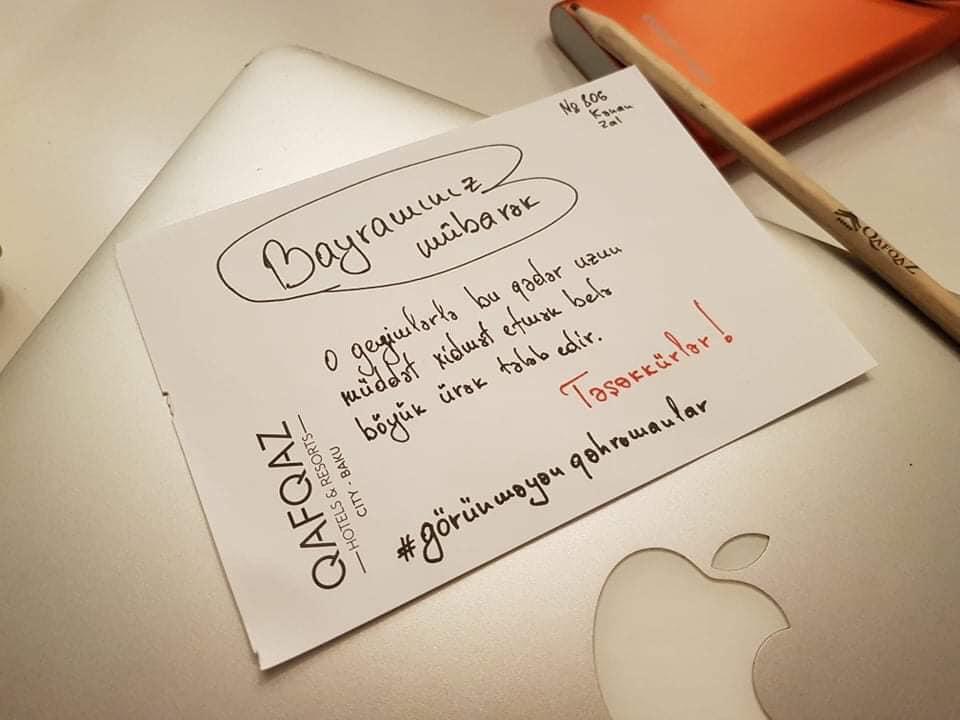 № 806
Kənan
Zal
Bayramınız
mübarək
O geyimlərlə bu qədər uzun
müddət xidmət etmək belə
böyük ürək tələb edir.
Təşəkkürlər!
#görünməyənqəhrəmanlar
QAFQAZ
HOTELS & RESORTS
CITY - BAKU
QAFQAZ